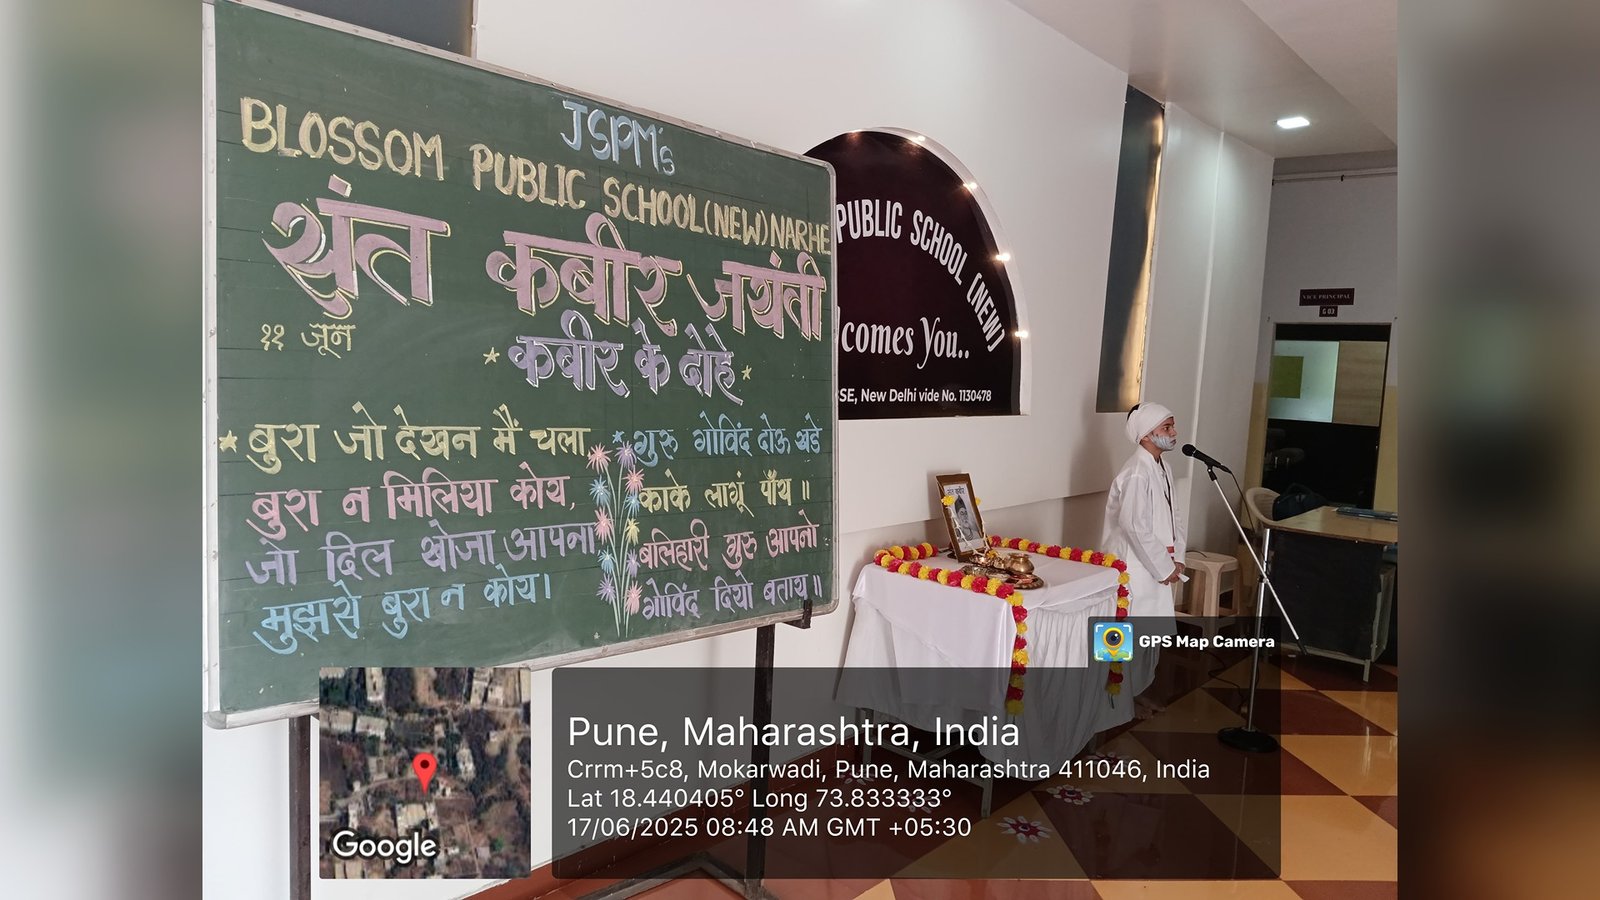 JSPM's
BLOSSOM PUBLIC SCHOOL(NEW)NARHE
संत कबीर जयंती
११ जून
कबीर के दोहे
बुरा जो देखन मैं चला,
बुरा न मिलिया कोय,
जो दिल खोजा आपना
मुझसे बुरा न कोय।
गुरु गोविंद दोऊ खडे
काके लागूं पाँय॥
बलिहारी गुरु आपनो
गोविंद दियो बताय॥
PUBLIC SCHOOL (NEW)
comes You..
SE, New Delhi vide No. 1130478
VICE PRINCIPAL
G 03
संत कबीर
GPS Map Camera
Google
Pune, Maharashtra, India
Crrm+5c8, Mokarwadi, Pune, Maharashtra 411046, India
Lat 18.440405° Long 73.833333°
17/06/2025 08:48 AM GMT +05:30